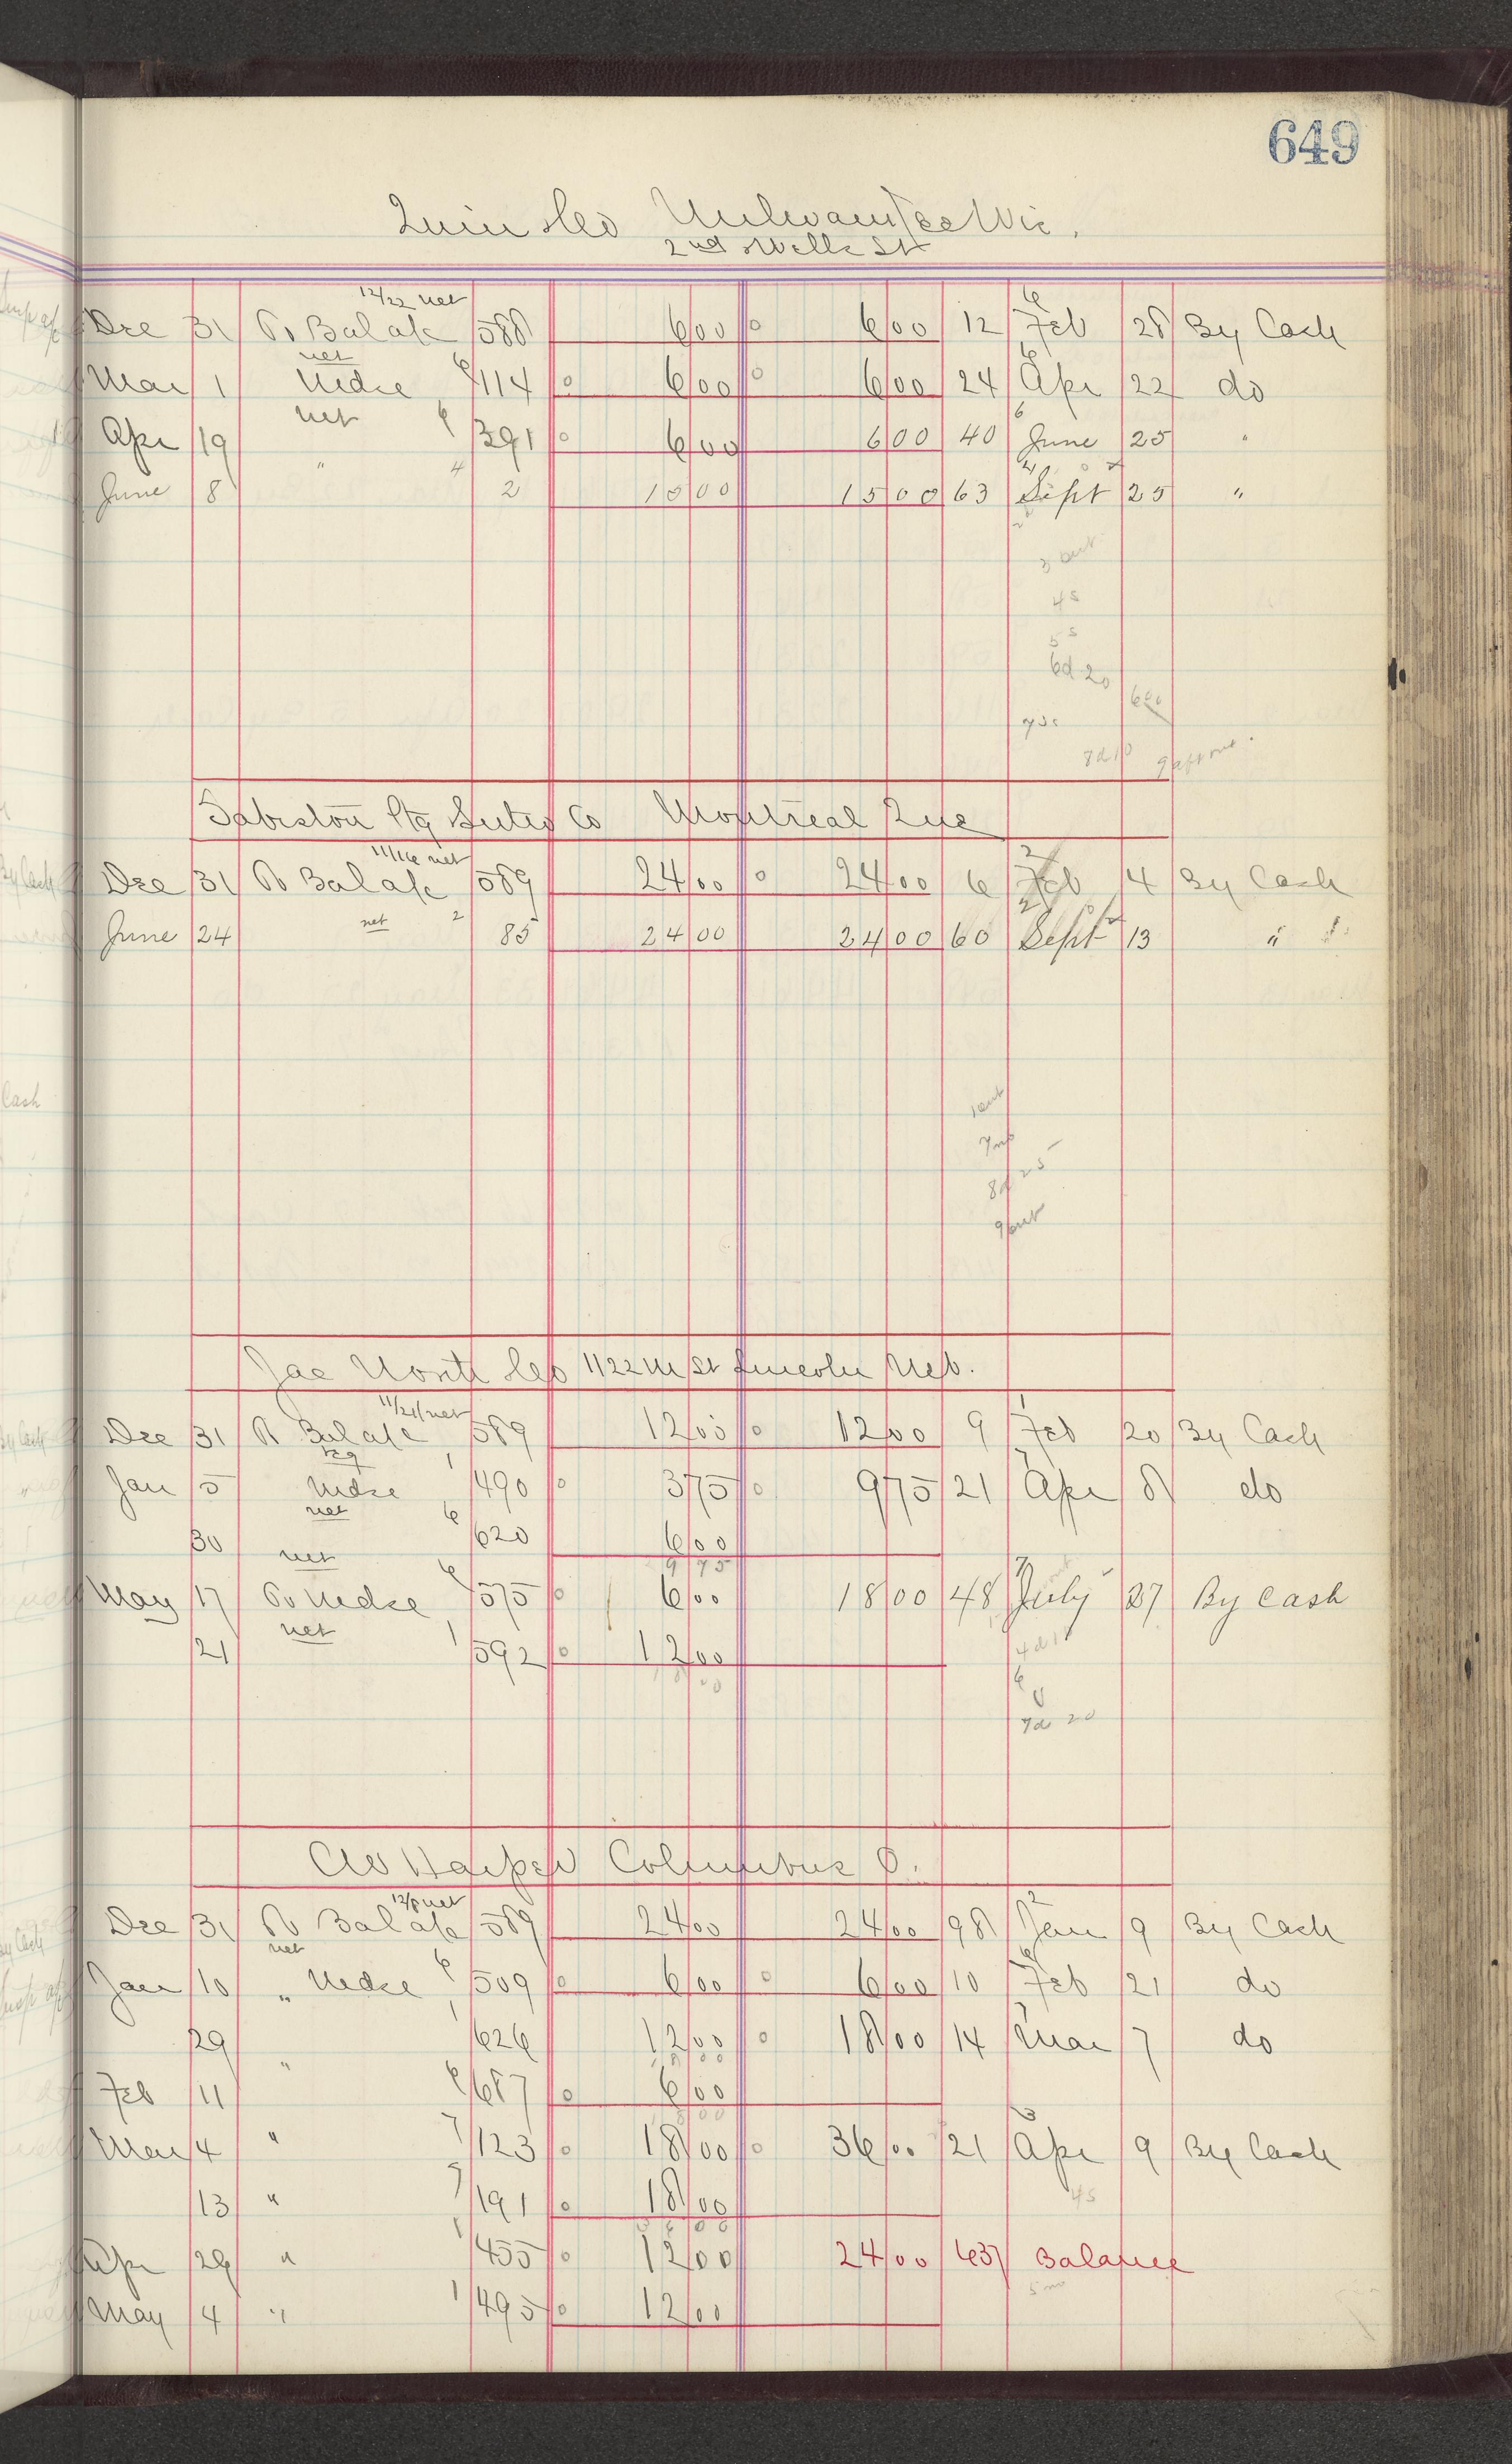 649
Milwaukee Wis.
2nd & Wells St
12/22 net
Dec 31 To Bal a/c 588 6 00 6 00 12 6 Feb 28 By Cash
net
Mar 1 Mdse 6 114 6 00 6 00 24 6 Apr 22 do
net
Apr 19 6 391 6 00 6 00 40 6 June 25 "
June 8 " 4 2 15 00 15 00 63 Sept 25 "
3 out
4 s
5 s
6d 20
600
7d10
Sabiston Ptg Co Montreal Que
11/16 net
Dec 31 To Bal a/c 589 24 00 24 00 6 2 Feb 4 By Cash
June 24 net 2 85 24 00 24 00 60 2 Sept 13 "
1 out
7 no
8d 25
9 out
Jas North & Co 1122 M St Lincoln Neb.
11/21 net
Dec 31 To Bal a/c 589 12 00 12 00 9 1 Feb 20 By Cash
Jan 5 Mdse 1 490 3 75 9 75 21 7 Apr 8 do
net
30 6 620 6 00
9 75
net
May 17 To Mdse 6 575 6 00 18 00 48 7 July 27 By Cash
net
21 1 592 12 00
18 00
7d 20
CW Harper Columbus O.
12/8 net
Dec 31 To Bal a/c 589 24 00 24 00 98 2 Jan 9 By Cash
net
Jan 10 " Mdse 6 509 6 00 6 00 10 6 Feb 21 do
29 " 1 626 12 00 18 00 14 7 Mar 7 do
Feb 11 6 687 6 00
18 00
Mar 4 " 7 123 18 00 36 00 21 3 Apr 9 By Cash
13 " 7 191 18 00
36 00
4s
Apr 26 " 1 455 12 00 24 00 637 Balance
5 no
May 4 " 1 495 12 00